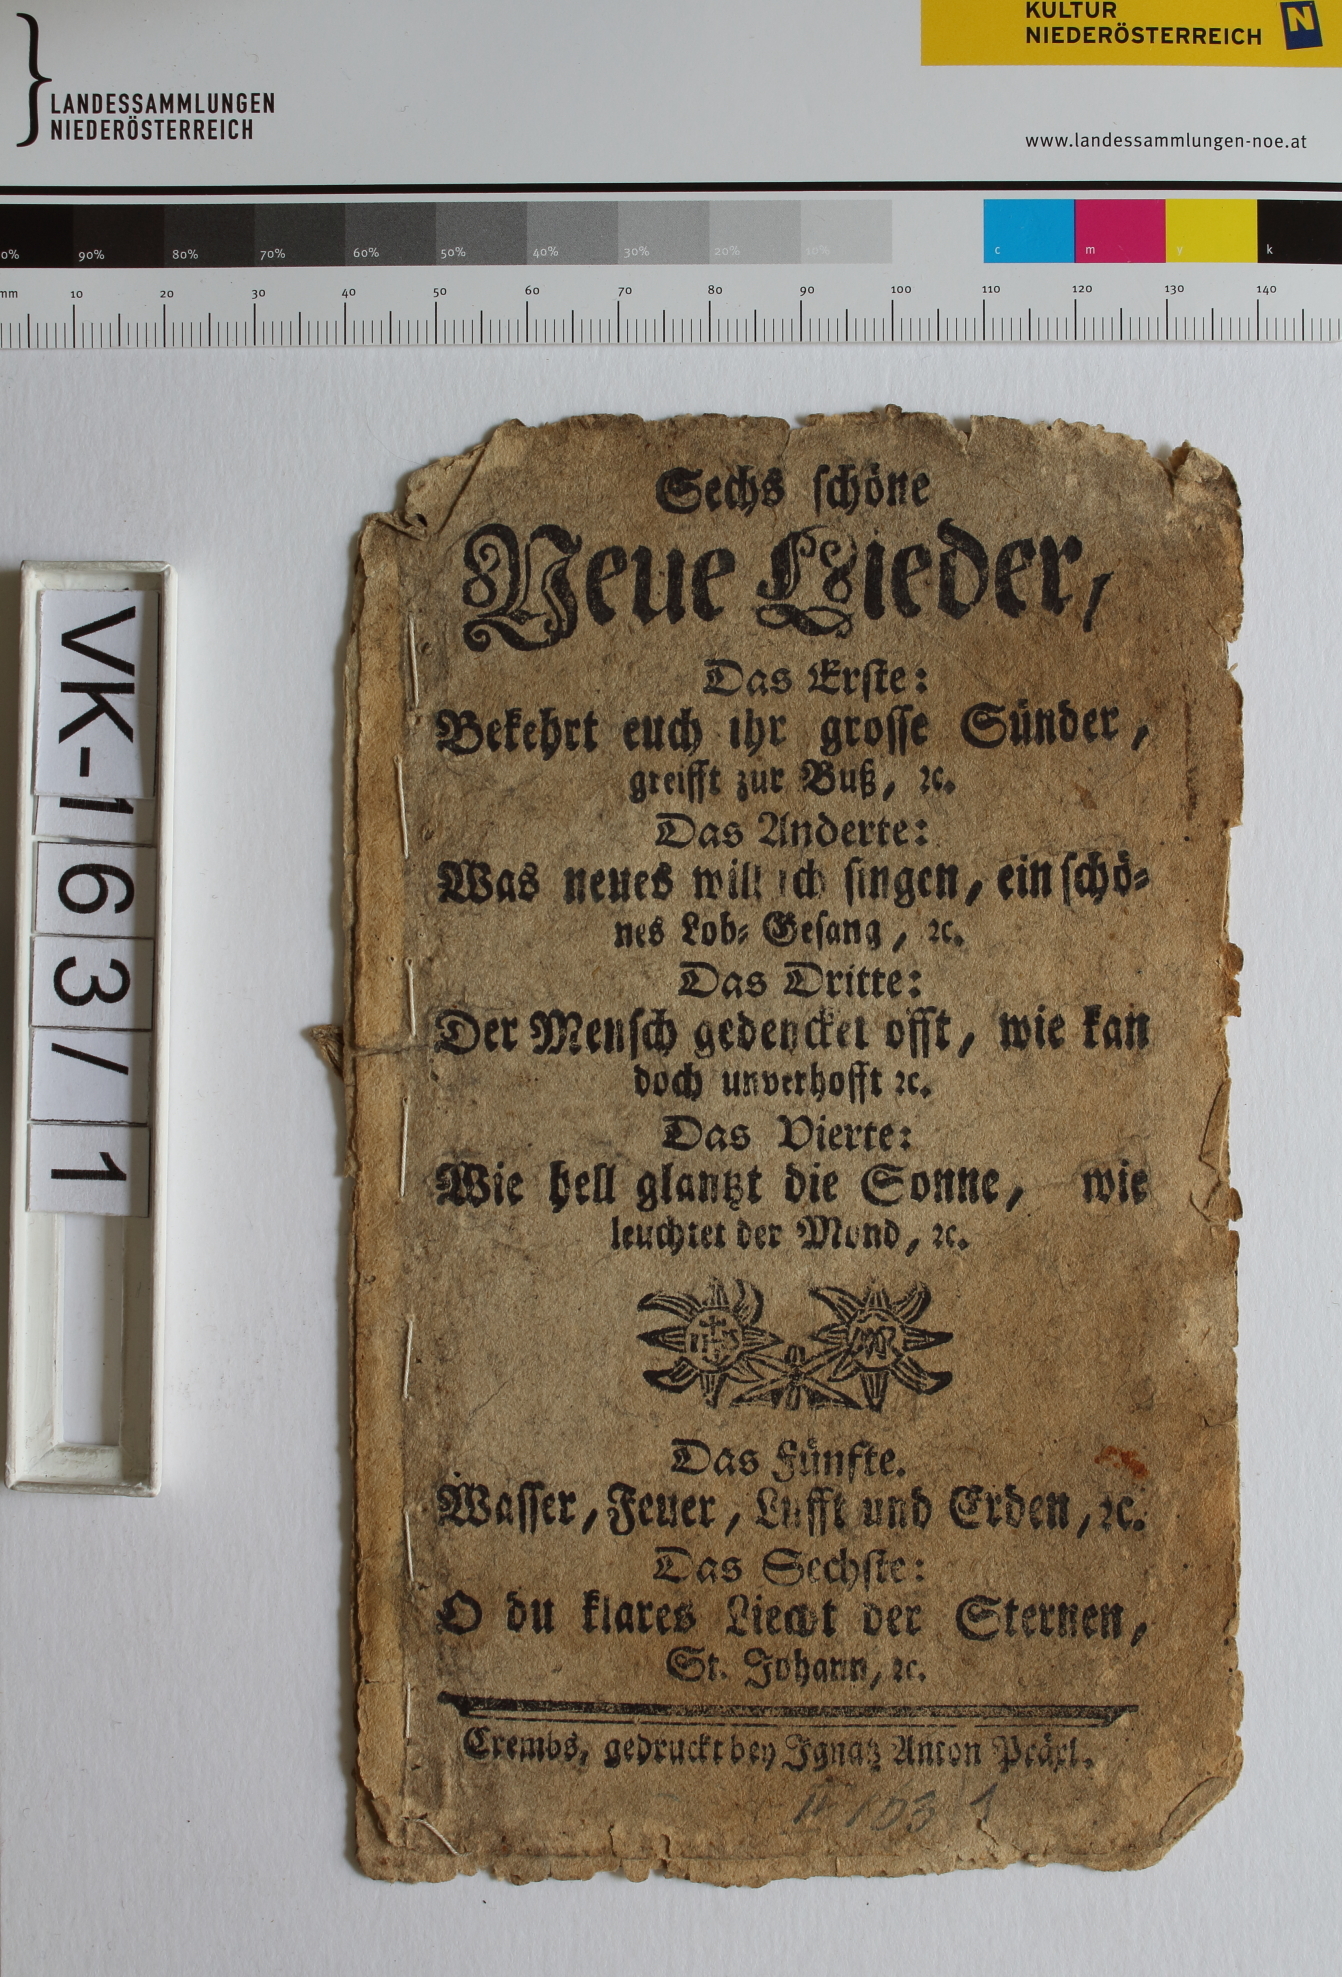 LANDESSAMMLUNGEN
NIEDERÖSTERREICH
KULTUR
NIEDERÖSTERREICH
N
www.landessammlungen-noe.at
0% 90% 80% 70% 60% 50% 40% 30% 20% 10% c m y k
mm 10 20 30 40 50 60 70 80 90 100 110 120 130 140
VK-163/1
Sechs schöne
Neue Lieder,
Das Erste:
Bekehrt euch ihr grosse Sünder,
greifft zur Buß, ꝛc.
Das Anderte:
Was neues will ich singen, ein schö⸗
nes Lob⸗ Gesang, ꝛc.
Das Dritte:
Der Mensch gedencket offt, wie kan
doch unverhofft ꝛc.
Das Vierte:
Wie hell glantzt die Sonne, wie
leuchtet der Mond, ꝛc.
IHS
Das Fünfte.
Wasser, Feuer, Lufft und Erden, ꝛc.
Das Sechste:
O du klares Liecht der Sternen,
St. Johann, ꝛc.
Crembs, gedruckt bey Ignatz Anton Präxl.